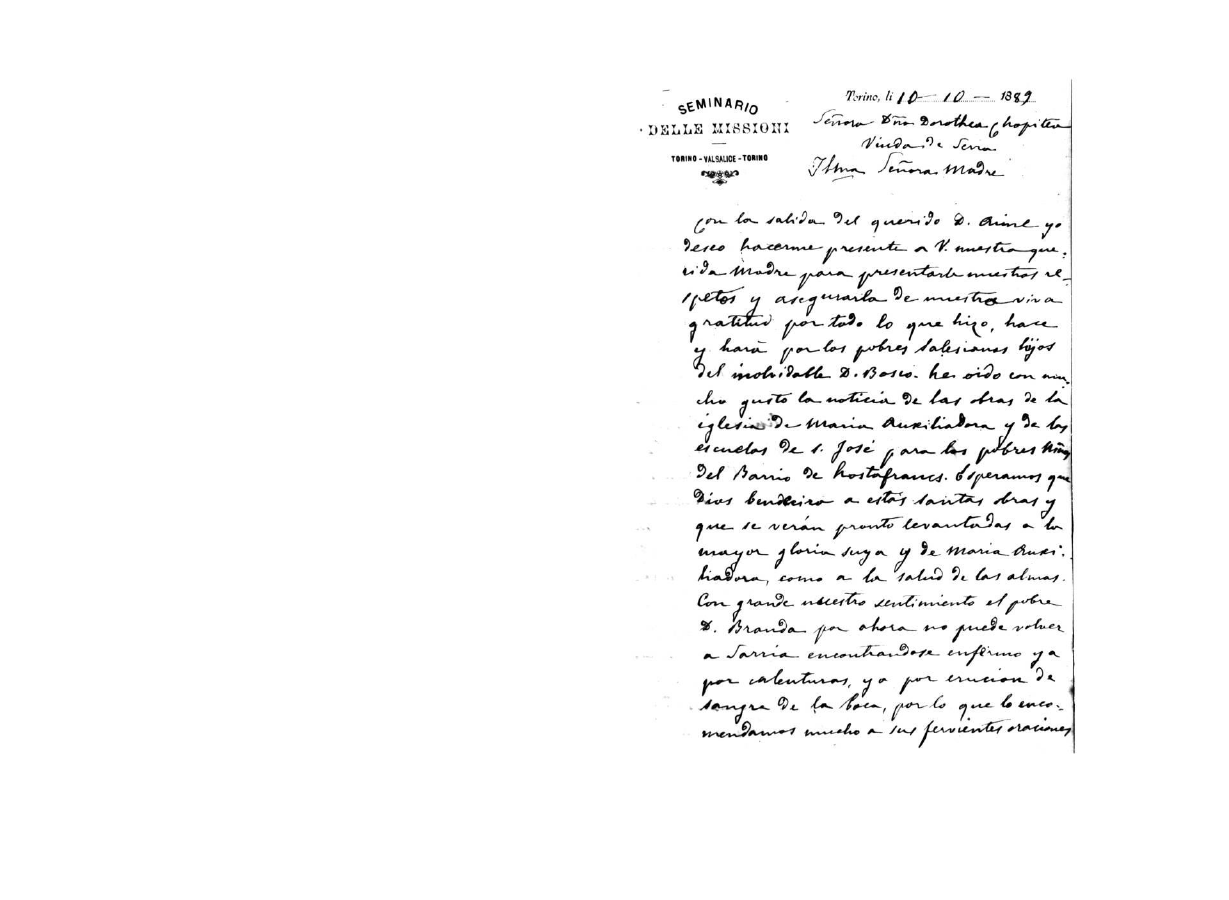 SEMINARIO
DELLE MISSIONI
TORINO - VALSALICE - TORINO
Torino, li 10 - 10 - 1889
Señora Dña Dorothea Chopitea
Viuda de Serra
Ilma Señora Madre
Con la salida del querido D. Aime yo
deseo hacerme presente a V. nuestra que-
rida Madre para presentarle nuestros re-
spetos y asegurarla de nuestra viva
gratitud por todo lo que hizo, hace
y hará por los pobres Salesianos hijos
del inolvidable D. Bosco. he oido con mu-
cho gusto la noticia de las obras de la
iglesia de Maria Auxiliadora y de las
escuelas de S. José para los pobres Niños
del Barrio de hostafrancs. Esperamos que
Dios a estas santas obras y
que se verán pronto levantadas a la
mayor gloria suya y de Maria Auxi-
liadora, como a la salud de las almas.
Con grande nuestro sentimiento el pobre
D. Branda por ahora no puede volver
a Sarria encontrandose enfermo ya
por calenturas, ya por erucion de
sangre de la boca, por lo que lo enco-
mendamos mucho a sus fervientes oraciones